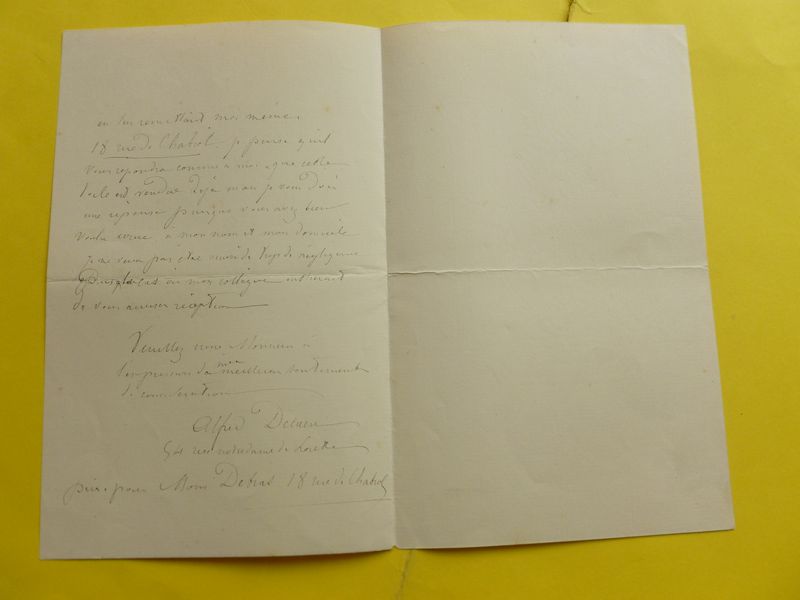 en lui remettant moi même
18 rue de Chabrol. Je pense qu'il
vous repondra comme a moi, que cette
toile est vendue déjà mais je vous dois
une réponse puisque vous avez bien
voulu à mon nom et mon domicile
Je ne veux pas être de trop de négligence
cas où mon collègue
de vous accuser réception
Veuillez Monsieur à
l'expression de mes meilleurs sentiments
de considération
Alfred
rue notre dame de Lorette
pour Mons Debras 18 rue de Chabrol